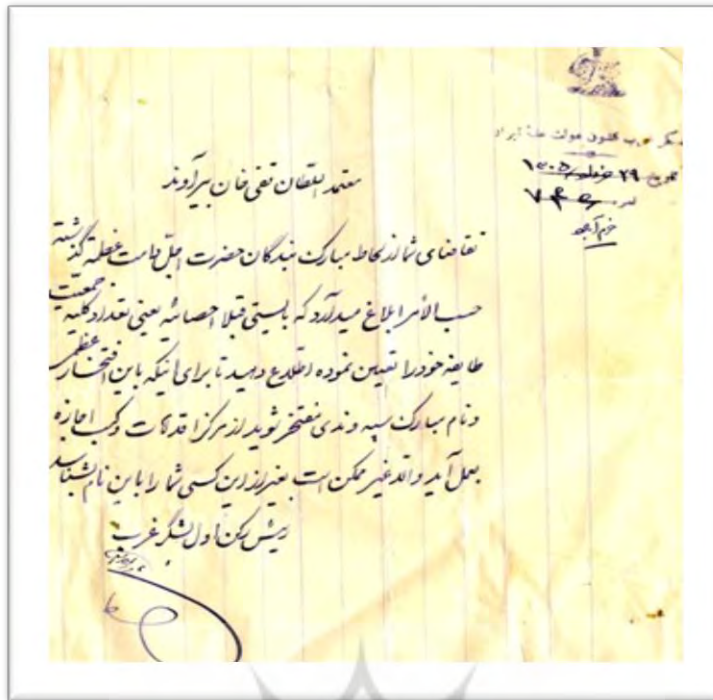 لشکر غرب قشون دولت علیه ایران
تاریخ ۲۹ خرداد ۱۳۰۵
نمره ۷۴۵
خرم آباد
معتمد السلطان تقی خان بیرآوند
تقاضای شما از لحاظ مبارک بندگان حضرت اجل دامت عظمته گذشته
حسب الامر ابلاغ میدارد که بایستی قبلا احصائیه یعنی تعداد کلیه جمعیت
طایفه خود را تعیین نموده اطلاع دهید تا برای اینکه باین افتخار عظمی
و نام مبارک سپه وندی مفتخر شوید از مرکز اقدامات و کسب اجازه
بعمل آید والا غیر ممکن است بغیر از این کسی شما را باین نام بشناسد
رئیس رکن اول لشگر غرب